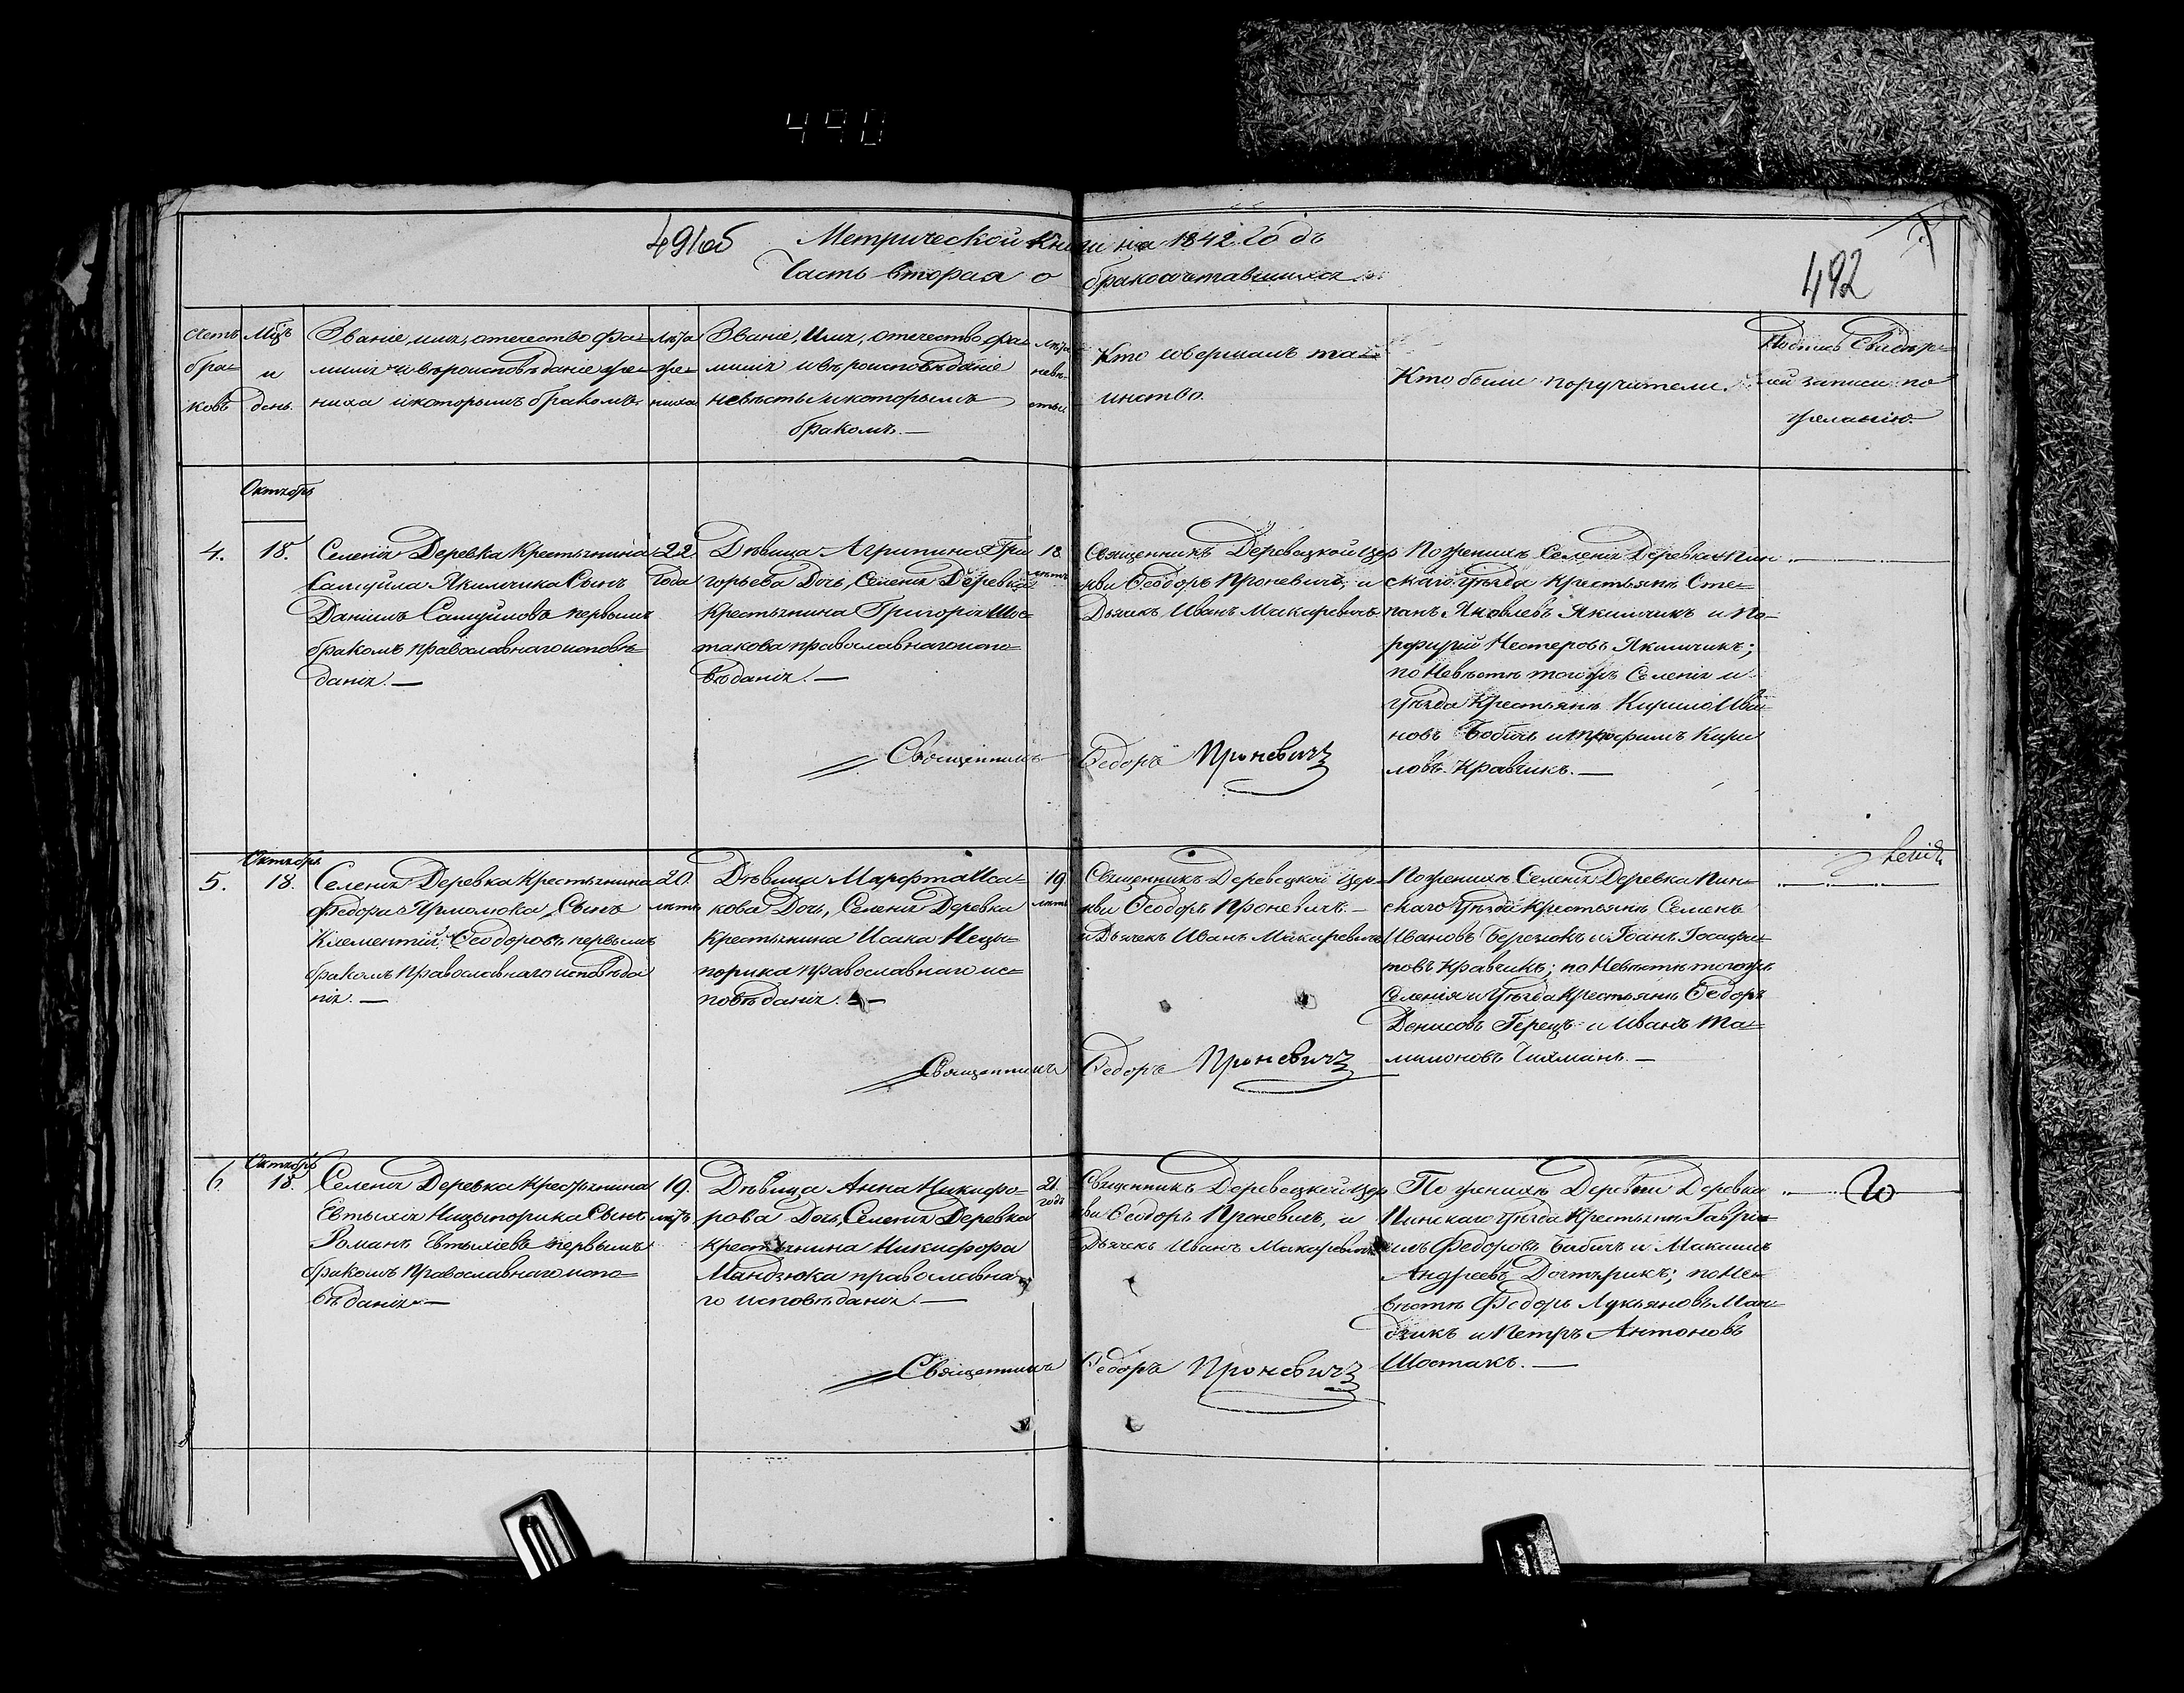 490
491об
Метрической книги на 1842. Годъ
Часть вторая о бракосочетавшихся.
492
Счетъ бра-
ковъ
Мѣ҃ць
и
день.
Званіе, имя, отечество фа-
милія и вѣроисповѣданіе же-
ниха и которымъ бракомъ.
Лѣта
же-
ниха
Званіе, Имя, отечество, фа-
милія и вѣроисповѣданіе
невѣсты и которымъ
бракомъ.—
Лѣта
невѣ-
сты
Кто совершалъ та-
инство.
Кто были поручители.
Подпись Свидѣте-
лей записи по
желанію.
Октябрь
4.
18.
Селенія Деревка Крестьянина
Самуила Якимчика Сынъ
Даніилъ Самуиловъ первымъ
бракомъ православнаго исповѣ-
данія.—
22
Года
Дѣвица Агрипина Гри
горьева Дочь, Селенія Деревка
Крестьянина Григорія Шос-
такова православнаго испо-
вѣданія.—
18
лѣтъ
Священникъ Деревецкой Цер
кви Ѳеодоръ Проневичъ, и
Дьячекъ Иванъ Макаревичъ.
По женихѣ Селенія Деревка Пин
скаго Уѣзда Крестьяне Сте-
панъ Яковлевъ Якимчикъ и По-
рфирій Нестеровъ Якимчикъ;
по Невѣстѣ тогожъ Селенія и
Уѣзда Крестьяне Кирило Ива-
новъ Бобичъ и Трофимъ Кири
ловъ Кравчикъ.—
Священникъ Ѳедоръ Проневичъ
Октябрь
5.
18.
Селенія Деревка Крестьянина
Федора Ярмолюка, Сынъ
Климентій Ѳеодоровъ первымъ
бракомъ Православнаго исповѣда
нія.—
20.
лѣтъ
Дѣвица Марфта Иса-
кова Дочь, Селенія Деревка
Крестьянина Исака Нецы-
порика православнаго ис-
повѣданія.—
19
лѣтъ
Священникъ Деревецкой Цер-
кви Ѳеодоръ Проневичъ.—
и Дьячекъ Иванъ Макаревичъ
По женихѣ Селенія Деревка Пин-
скаго Уѣзда Крестьяне Семенъ
Ивановъ Березюкъ и Іоанъ Іосафа-
товъ Кравчикъ; по Невѣстѣ тогожъ
Селенія и Уѣзда Крестьяне Ѳедоръ
Денисовъ Герецъ и Иванъ
Чихманъ.—
Священникъ Ѳедоръ Проневичъ
Октябрь
6.
18.
Селенія Деревка Крестьянина
Евтыхія Ницыпорика Сынъ
Романъ Евтыхіевъ первымъ
бракомъ Православнаго испо-
вѣданія.—
19.
лѣтъ
Дѣвица Анна Никифо-
рова Дочь, Селенія Деревка
Крестьянина Никифора
Мандзюка православна
го исповѣданія.—
21.
годъ
Священникъ Деревецкой Цер
кви Ѳеодоръ Проневичъ, и
Дьячекъ Иванъ Макаревичъ
По женихѣ Деревни Деревка
Пинскаго Уѣзда Крестьяне Гаврі-
илъ Федоровъ Бабичъ и Максимъ
Андреевъ Догтярикъ; по Не-
вѣстѣ Федоръ Лукьяновъ Ман-
дзикъ и Петръ Антоновъ
Шостакъ.—
Священникъ Ѳедоръ Проневичъ